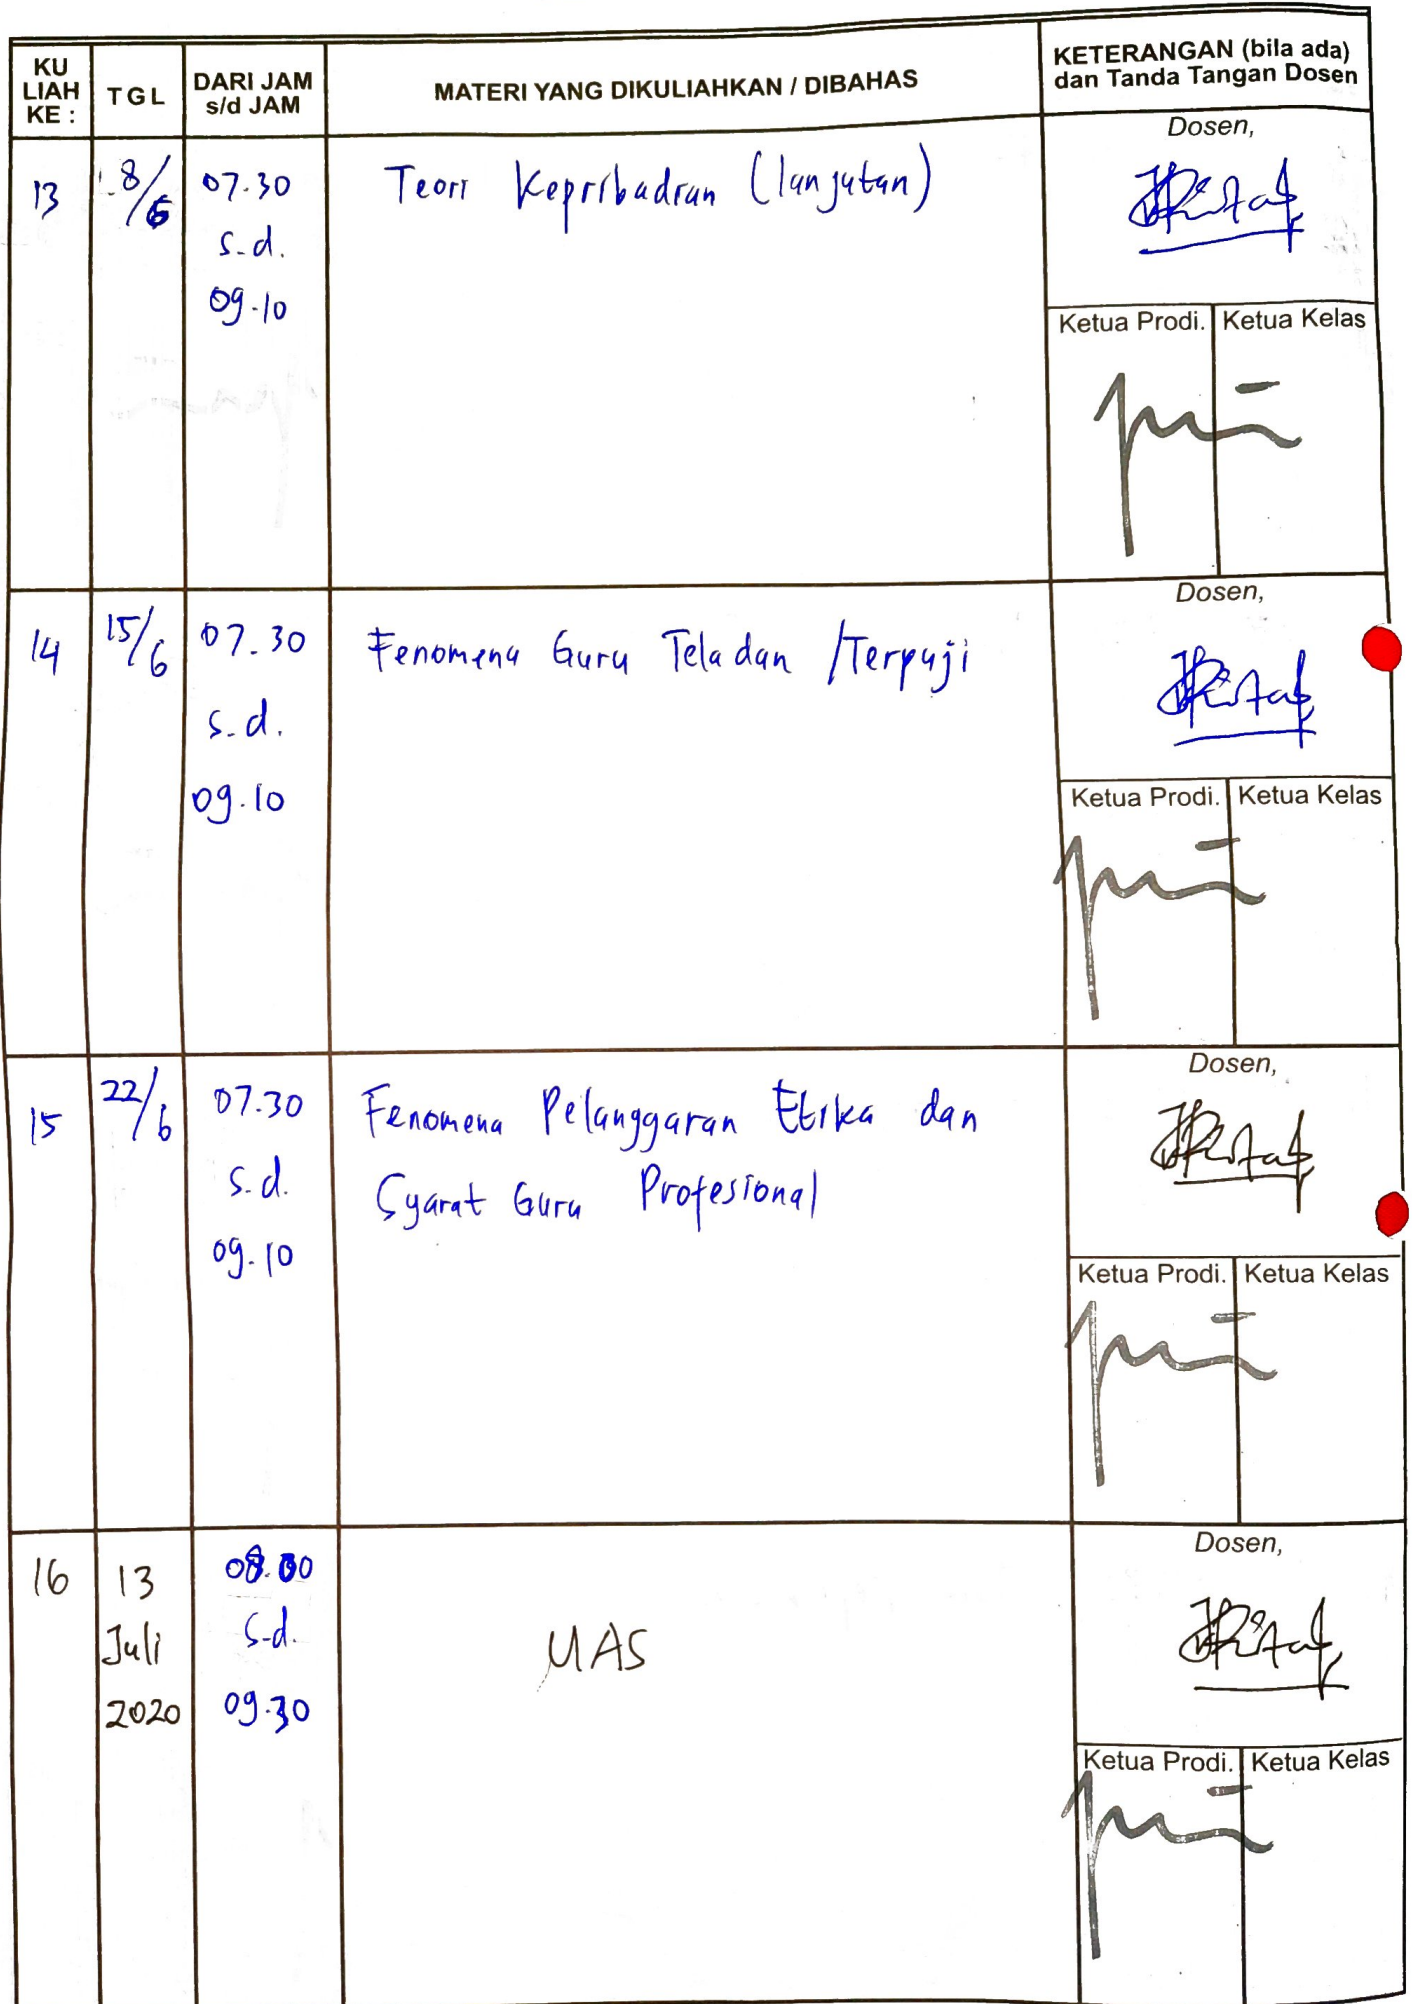 KU LIAH KE :
TGL
DARI JAM s/d JAM
MATERI YANG DIKULIAHKAN / DIBAHAS
KETERANGAN (bila ada) dan Tanda Tangan Dosen
13
8/6
07.30
s.d.
09.10
Teori Kepribadian (lanjutan)
Dosen,
Ketua Prodi.
Ketua Kelas
14
15/6
07.30
s.d.
09.10
Fenomena Guru Teladan /Terpuji
Dosen,
Ketua Prodi.
Ketua Kelas
15
22/6
07.30
s.d.
09.10
Fenomena Pelanggaran Etika dan
Syarat Guru Profesional
Dosen,
Ketua Prodi.
Ketua Kelas
16
13
Juli
2020
08.00
s.d.
09.30
UAS
Dosen,
Ketua Prodi.
Ketua Kelas